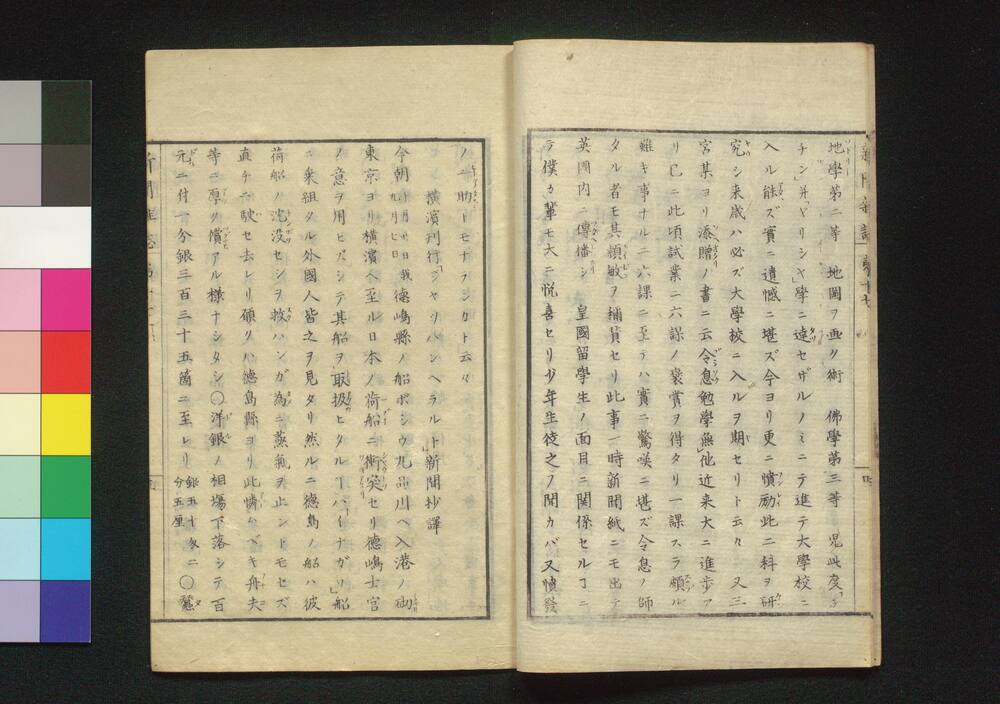 地學第二等　地圖ヲ画ク術　佛學第三等　児此度ラ
チン」并「ギリシヤ」學ニ達セザルノミニテ進テ大學校ニ
入ル能ズ實ニ遺憾ニ堪ズ今ヨリ更ニ憤励此二科ヲ研
究シ来歳ハ必ズ大學校ニ入ルヲ期セリト云々　又三
宮某ヨリ添贈ノ書ニ云令息勉學無他近来大ニ進歩ア
リ已ニ此頃試業ニ六課ノ褒賞ヲ得タリ一課スラ頗ル
難キ事ナルニ六課ニ至テハ實ニ驚嘆ニ堪ズ令息ノ師
タル者モ其頴敏ヲ稱賞セリ此事一時新聞紙ニモ出テ
英國内ニ傳播シ　皇國留學生ノ面目ニ関係セル丁ニ
テ僕カ輩モ大ニ悦喜セリ少年生徒之ヲ聞カバ又憤發
ノ一助トモナランカト云々
横濱刊行「ジヤッパンヘラルト」新聞抄譯
今朝十月廿日我九月七日德嶋縣ノ船ボシウ丸品川ヘ入港ノ砌
東京ヨリ横濱ヘ至ル日本ノ荷船ニ衝突セリ德嶋士官
ノ意ヲ用ヒズシテ其船ヲ取扱ヒタル丁ハ「イナガリ」船
ニ乘組タル外國人皆之ヲ見タリ然ルニ德島ノ船ハ彼
荷船ノ沈没セシヲ救ハンガ為ニ蒸氣ヲ止ントモセズ
直チニ駛セ去レリ願クハ德島縣ヨリ此憐ムベキ舟夫
等ニ厚ク償アル様ナシタシ〇洋銀ノ相場下落シテ百
元ニ付一分銀三百三十五箇ニ至レリ銀五十匁二分五厘〇蠶